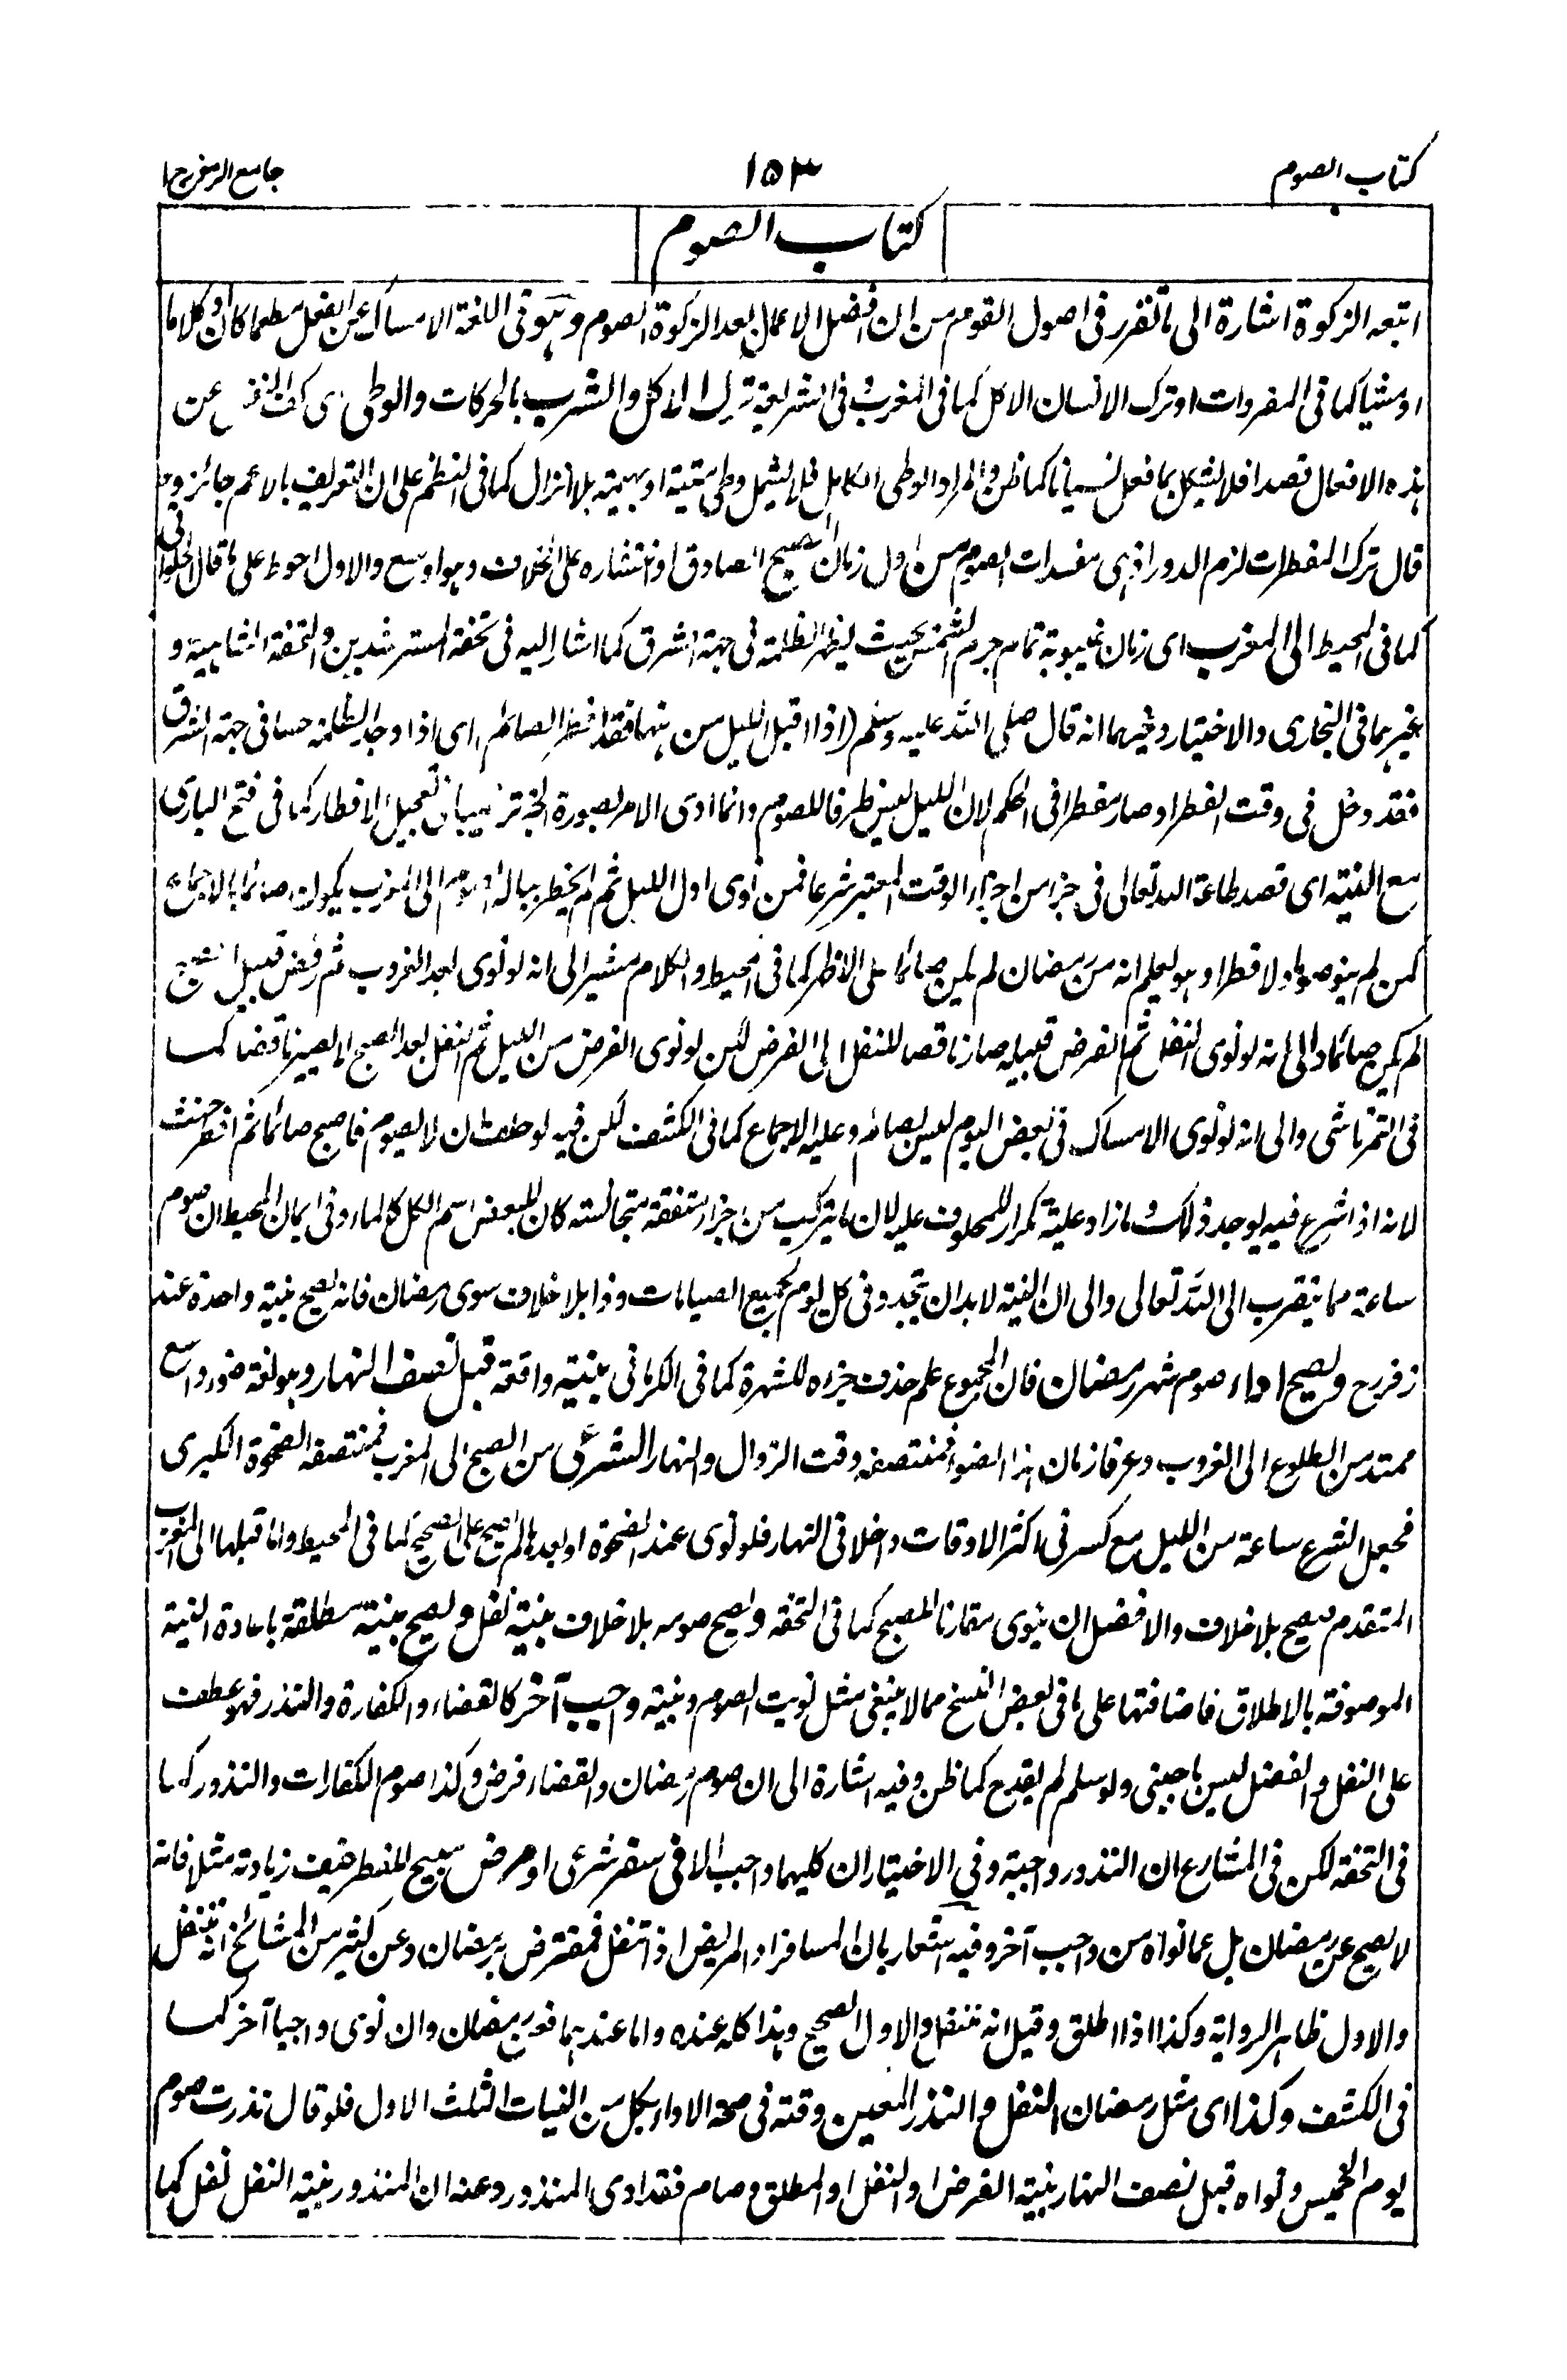 كتاب الصوم ١٥٣ جامع الرموز ج ١
كتاب الصوم
اتبعه الزكوة اشارة الى ما تقرر فى اصول القوم من ان افضل الاعمال بعد الزكوة الصوم وهو فى اللغة الامساك عن الفعل مطعما كان او كلاما
او مشيا كما فى المفردات او ترك الانسان الاكل كما فى المغرب وفى الشريعة ترك الاكل والشرب بالحركات والوطى اى كف النفس عن
هذه الافعال قصدا فلا يشكل بما فعل نسيانا كما ظن والمراد الوطى الكامل فلا يشمل وطى ميتة او بهيمة بلا انزال كما فى النظم على ان التعريف بالاعم جائز ومن
قال ترك المفطرات لزم الدور اذ هى مفسدات الصوم من اول زمان الصبح الصادق او انتشاره على الخلاف وهو اوسع والاول احوط على ما قال الحلوانى
كما فى المحيط الى المغرب اى زمان غيبوبة تمام جرم الشمس بحيث يظهر الظلمة فى جهة المشرق كما اشار اليه فى تحفة المسترشدين والتحفة الشاهية و
غيرهما فى البخارى والاختيار وغيرهما انه قال صلى الله عليه وسلم (اذا اقبل الليل من ههنا فقد افطر الصائم) اى اذا وجد الظلمة حسا فى جهة المشرق
فقد دخل فى وقت الفطر او صار مفطرا فى الحكم لان الليل ليس ظرفا للصوم وانما ادى الامر بصورة الخبر ترغيبا فى تعجيل الافطار كما فى فتح البارى
مع النية اى قصد طاعة الله تعالى فى جزء من اجزاء الوقت المعتبر شرعا فمن نوى اول الليل ثم لم يخطر بباله الصوم الى المغرب يكون صائما بالاجماع
كمن لم ينو صوما ولا فطرا وهو يعلم انه من رمضان لم يكن صائما على الاظهر كما فى المحيط والكلام مشير الى انه لو نوى بعد الغروب ثم رفض قبيل الصبح
لم يكن صائما والى انه لو نوى النفل ثم الفرض قبيله صار ناقصا للنفل الى الفرض لكن لو نوى الفرض من الليل ثم النفل بعد الصبح لا يصير ناقضا كما
فى التمرتاشى والى انه لو نوى الامساك فى بعض اليوم ليس بصائم وعليه الاجماع كما فى الكشف لكن فيه لو حلف ان لا يصوم فاصبح صائما ثم افطر حنث
لانه اذا شرع فيه يوجد ذلك وما زاد عليه تكرار للمحلوف عليه لان ما يتركب من اجزاء متفقة متجانسة كان للبعض اسم الكل كالماء وفى ايمان المحيط ان صوم
ساعة مما يتقرب الى الله تعالى والى ان النية لا بد ان تجدد فى كل يوم لجميع الصيامات وذا بلا خلاف سوى رمضان فانه يصح بنية واحدة عند
زفر رح ويصح اداء صوم شهر رمضان فان المجموع علم حذف جزءه للشهرة كما فى الكرمانى بنية واقعة قبل نصف النهار وهو لغة ضوء واسع
ممتد من الطلوع الى الغروب وعرفا زمان هذا الضوء فمنتصفه وقت الزوال والنهار الشرعى من الصبح الى المغرب فمنتصفه الضحوة الكبرى
فجعل الشرع ساعة من الليل مع كسر فى اكثر الاوقات داخلا فى النهار فلو نوى عند الضحوة او بعدها لم يصح على الصحيح كما فى المحيط واما قبلها الى المغرب
المتقدم فيصح بلا خلاف والافضل ان ينوى مقارنا للصبح كما فى التحفة ويصح صومه بلا خلاف بنية نفل ويصح بنية مطلقة باعادة النية
الموصوفة بالاطلاق فاضافتها على ما فى بعض النسخ مما لا ينبغى مثل نويت الصوم وبنية واجب آخر كالقضاء والكفارة والنذر فهو عطف
على النفل والفصل ليس باجنبى ولو سلم لم يقدح كما ظن وفيه اشارة الى ان صوم رمضان والقضاء فرض وكذا صوم الكفارات والنذور كما
فى التحفة لكن فى المشارع ان النذور واجبة وفى الاختيار ان كليهما واجب الا فى سفر شرعى او مرض يبيح الفطر خيف زيادته مثلا فانه
لا يصح عن رمضان بل عما نواه من واجب آخر وفيه اشعار بان المسافر او المريض اذا تنفل فمفترض برمضان وعن كثير من المشائخ انه تنفل
والاول ظاهر الرواية وكذا اذا اطلق وقيل انه تنفل والاول الصحيح وهذا كله عنده واما عندهما فعن رمضان وان نوى واجبا آخر كما
فى الكشف وكذا اى مثل رمضان النفل والنذر المعين وقته فى صحة الاداء بكل من النيات الثلث الاول فلو قال نذرت صوم
يوم الخميس ونواه قبل نصف النهار بنية الفرض او النفل او المطلق وصام فقد ادى المنذور وعنه ان المنذور بنية النفل نفل كما